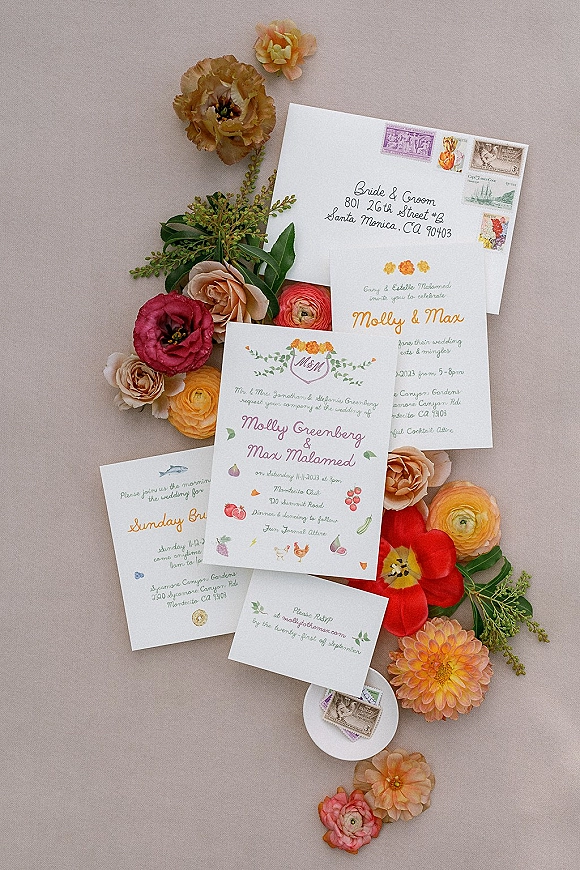 Bride & Groom
801 26th Street #B
Santa Monica, CA 90403
Gary & Estelle Malamed
invite you to celebrate
Molly & Max
their wedding
eats & mingles
2023 from 5-8pm
Canyon Gardens
Canyon Rd.
CA 93108
Cocktail Attire
M&M
Mr. & Mrs. Jonathan & Stefanie Greenberg
request your company at the wedding of
Molly Greenberg
&
Max Malamed
on Saturday 11-11-2023 at 5pm
Montecito Club
920 Summit Road
Dinner & Dancing to follow
Farm Formal Attire
Please join us the morning
the wedding for
Sunday Bru
Sunday 11-12-2
come anytime
9am to 1
Sycamore Canyon Gardens
2320 Sycamore Canyon Rd.
Montecito CA 93108
Please RSVP
at mollytothemax.com
by the twenty-first of September